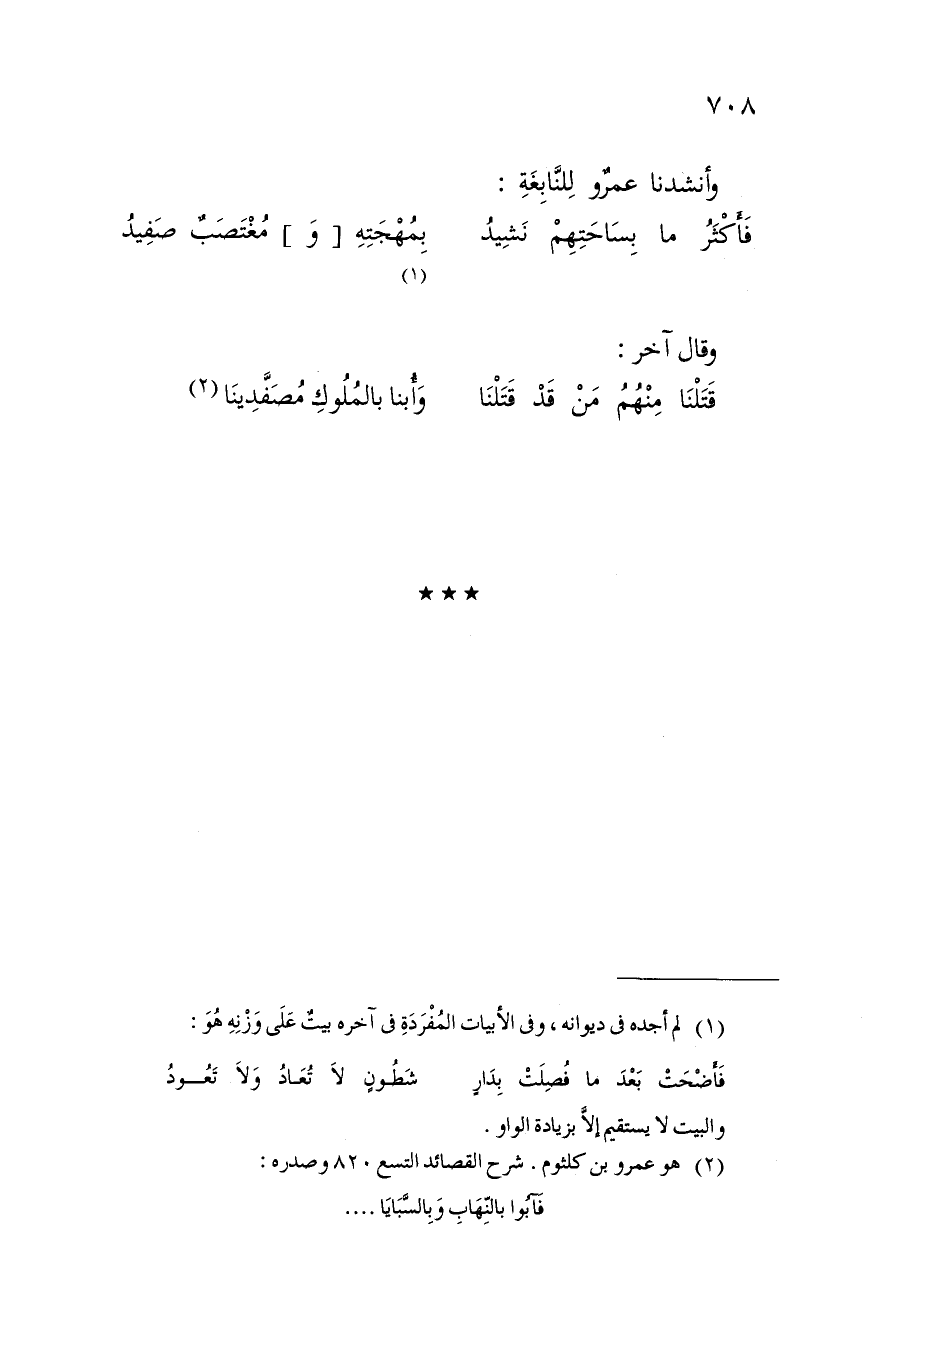 ٧٠٨
وأنشدنا عمرٌو لِلنَّابِغَةِ :
فَأَكْثَرُ ما بِسَاحَتِهِمْ نَشِيدُ بِمُهْجَتِهِ [ وَ ] مُغْتَصَبٌ صَفِيدُ
(١)
وقال آخر :
قَتَلْنَا مِنْهُمُ مَنْ قَدْ قَتَلْنَا وَأُبنا بالمُلُوكِ مُصَفَّدِينَا (٢)
★ ★ ★
(١) لم أجده فى ديوانه ، وفى الأبيات المُفْرَدَةِ فى آخره بيتٌ عَلَى وَزْنِهِ هُوَ :
فَأَضْحَتْ بَعْدَ ما فُصِلَتْ بِدَارٍ شَطُونٍ لاَ تُعَادُ وَلاَ تَعُودُ
والبيت لا يستقيم إلاَّ بزيادة الواو .
(٢) هو عمرو بن كلثوم . شرح القصائد التسع ٨٢٠ وصدره :
فَآبُوا بالنِّهَابِ وَبِالسَّبَايَا ....